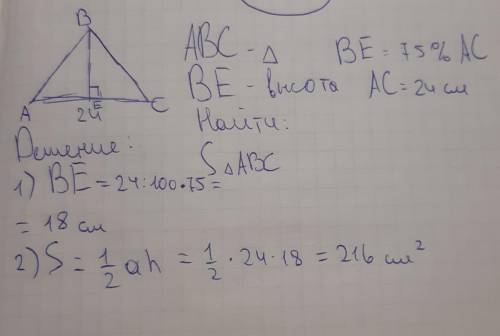 B
A E C
24
ABC - Δ BE = 75% AC
BE - высота AC = 24 см
Найти:
S△ABC
Решение:
1) BE = 24:100·75 =
= 18 см
2) S = 1/2 ah = 1/2 · 24 · 18 = 216 см²